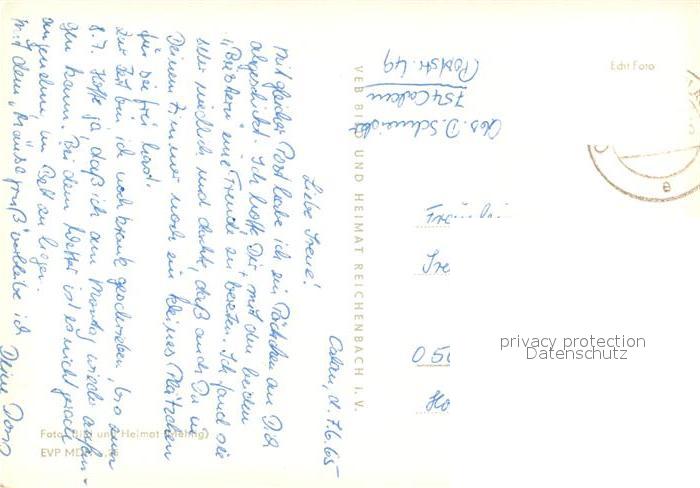 Calau, d. 7.6.65
Liebe Irene!
Mit gleicher Post habe ich ein Päckchen an Dich
abgeschickt. Ich hoffe, Dir mit den beiden
eine Freude zu bereiten. Ich fand sie
sehr niedlich und dachte, daß auch Du in
Deinem Zimmer noch ein kleines Plätzchen
für sie frei hast.
Zur Zeit bin ich noch krank geschrieben, bis zum
8.7. Hoffe ja, daß ich am Montag wieder anfan-
gen kann. Bei dem Wetter ist es nicht grad
angenehm, im Bett zu liegen.
Mit dem verbleibe ich
Deine Doris
Abs. D. Schneider
754 Calau
Poststr. 49
VEB BILD UND HEIMAT REICHENBACH I. V.
Echt Foto
Foto: Bild und Heimat
EVP MDN
privacy protection
Datenschutz